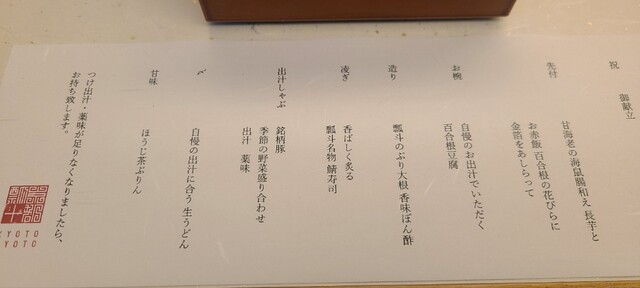 祝 御献立
先付
甘海老の海鼠腸和え 長芋と
お赤飯 百合根の花びらに
金箔をあしらって
お椀
自慢のお出汁でいただく
百合根豆腐
造り
瓢斗のぶり大根 香味ぽん酢
凌ぎ
香ばしく炙る
瓢斗名物 鯖寿司
出汁しゃぶ
銘柄豚
季節の野菜盛り合わせ
出汁 薬味
〆
自慢の出汁に合う 生うどん
甘味
ほうじ茶ぷりん
つけ出汁・薬味が足りなくなりましたら、
お持ち致します。
KYOTO
KYOTO